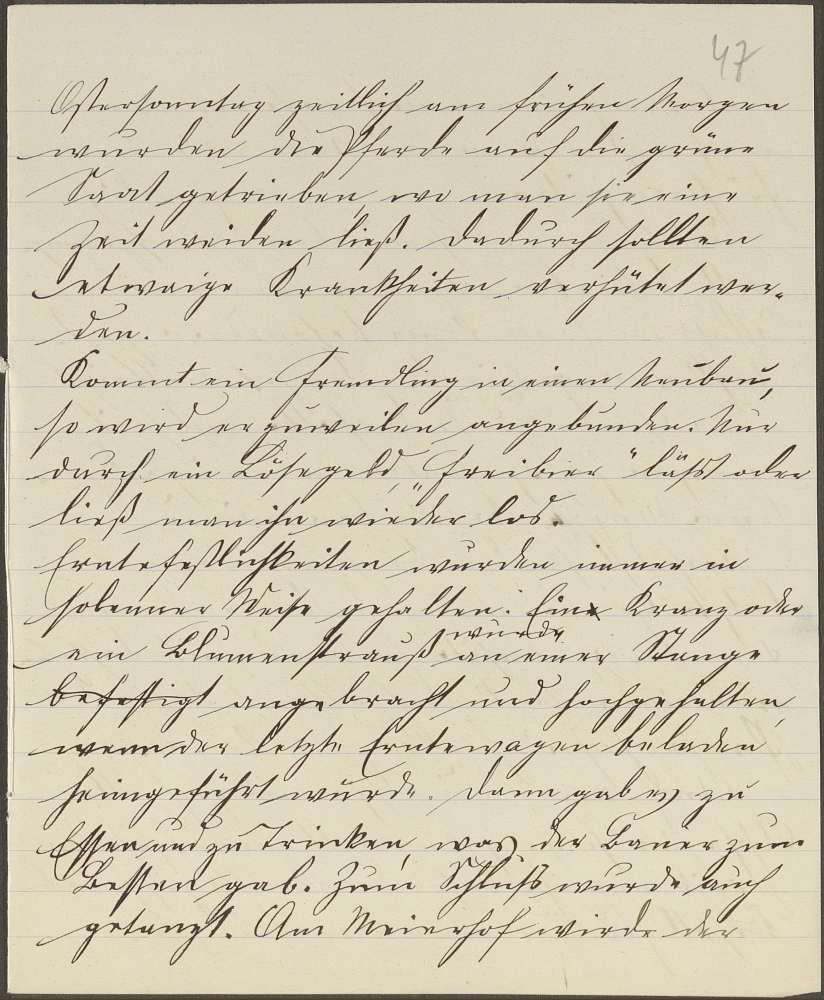 47
Ostersonntag zeitlich am frühen Morgen
wurden die Pferde auf die grüne
Saat getrieben, wo man sie eine
Zeit weiden ließ. Dadurch sollten
etwaige Krankheiten verhütet wer-
den.
Kommt ein Fremdling in einen Neubau,
so wird er zuweilen angebunden. Nur
durch ein Lösegeld, „Freibier" läßt oder
ließ man ihn wieder los.
Erntefestlichkeiten wurden immer in
solenner Weise gehalten. Ein Kranz oder
wurde
ein Blumenstrauß an einer Stange
befestigt angebracht und hochgehalten,
wenn der letzte Erntewagen beladen
heimgeführt wurde. Dann gab es zu
Essen und zu Trinken, was der Bauer zum
Besten gab. Zum Schluß wurde auch
getanzt. Am Meierhof wirde der